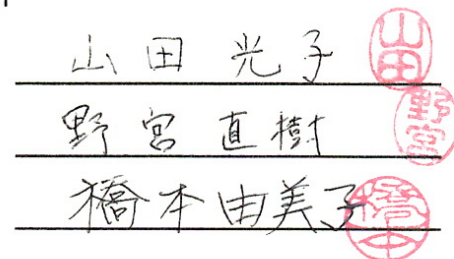 山田光子 山田
野宮直樹 野宮
橋本由美子 橋本